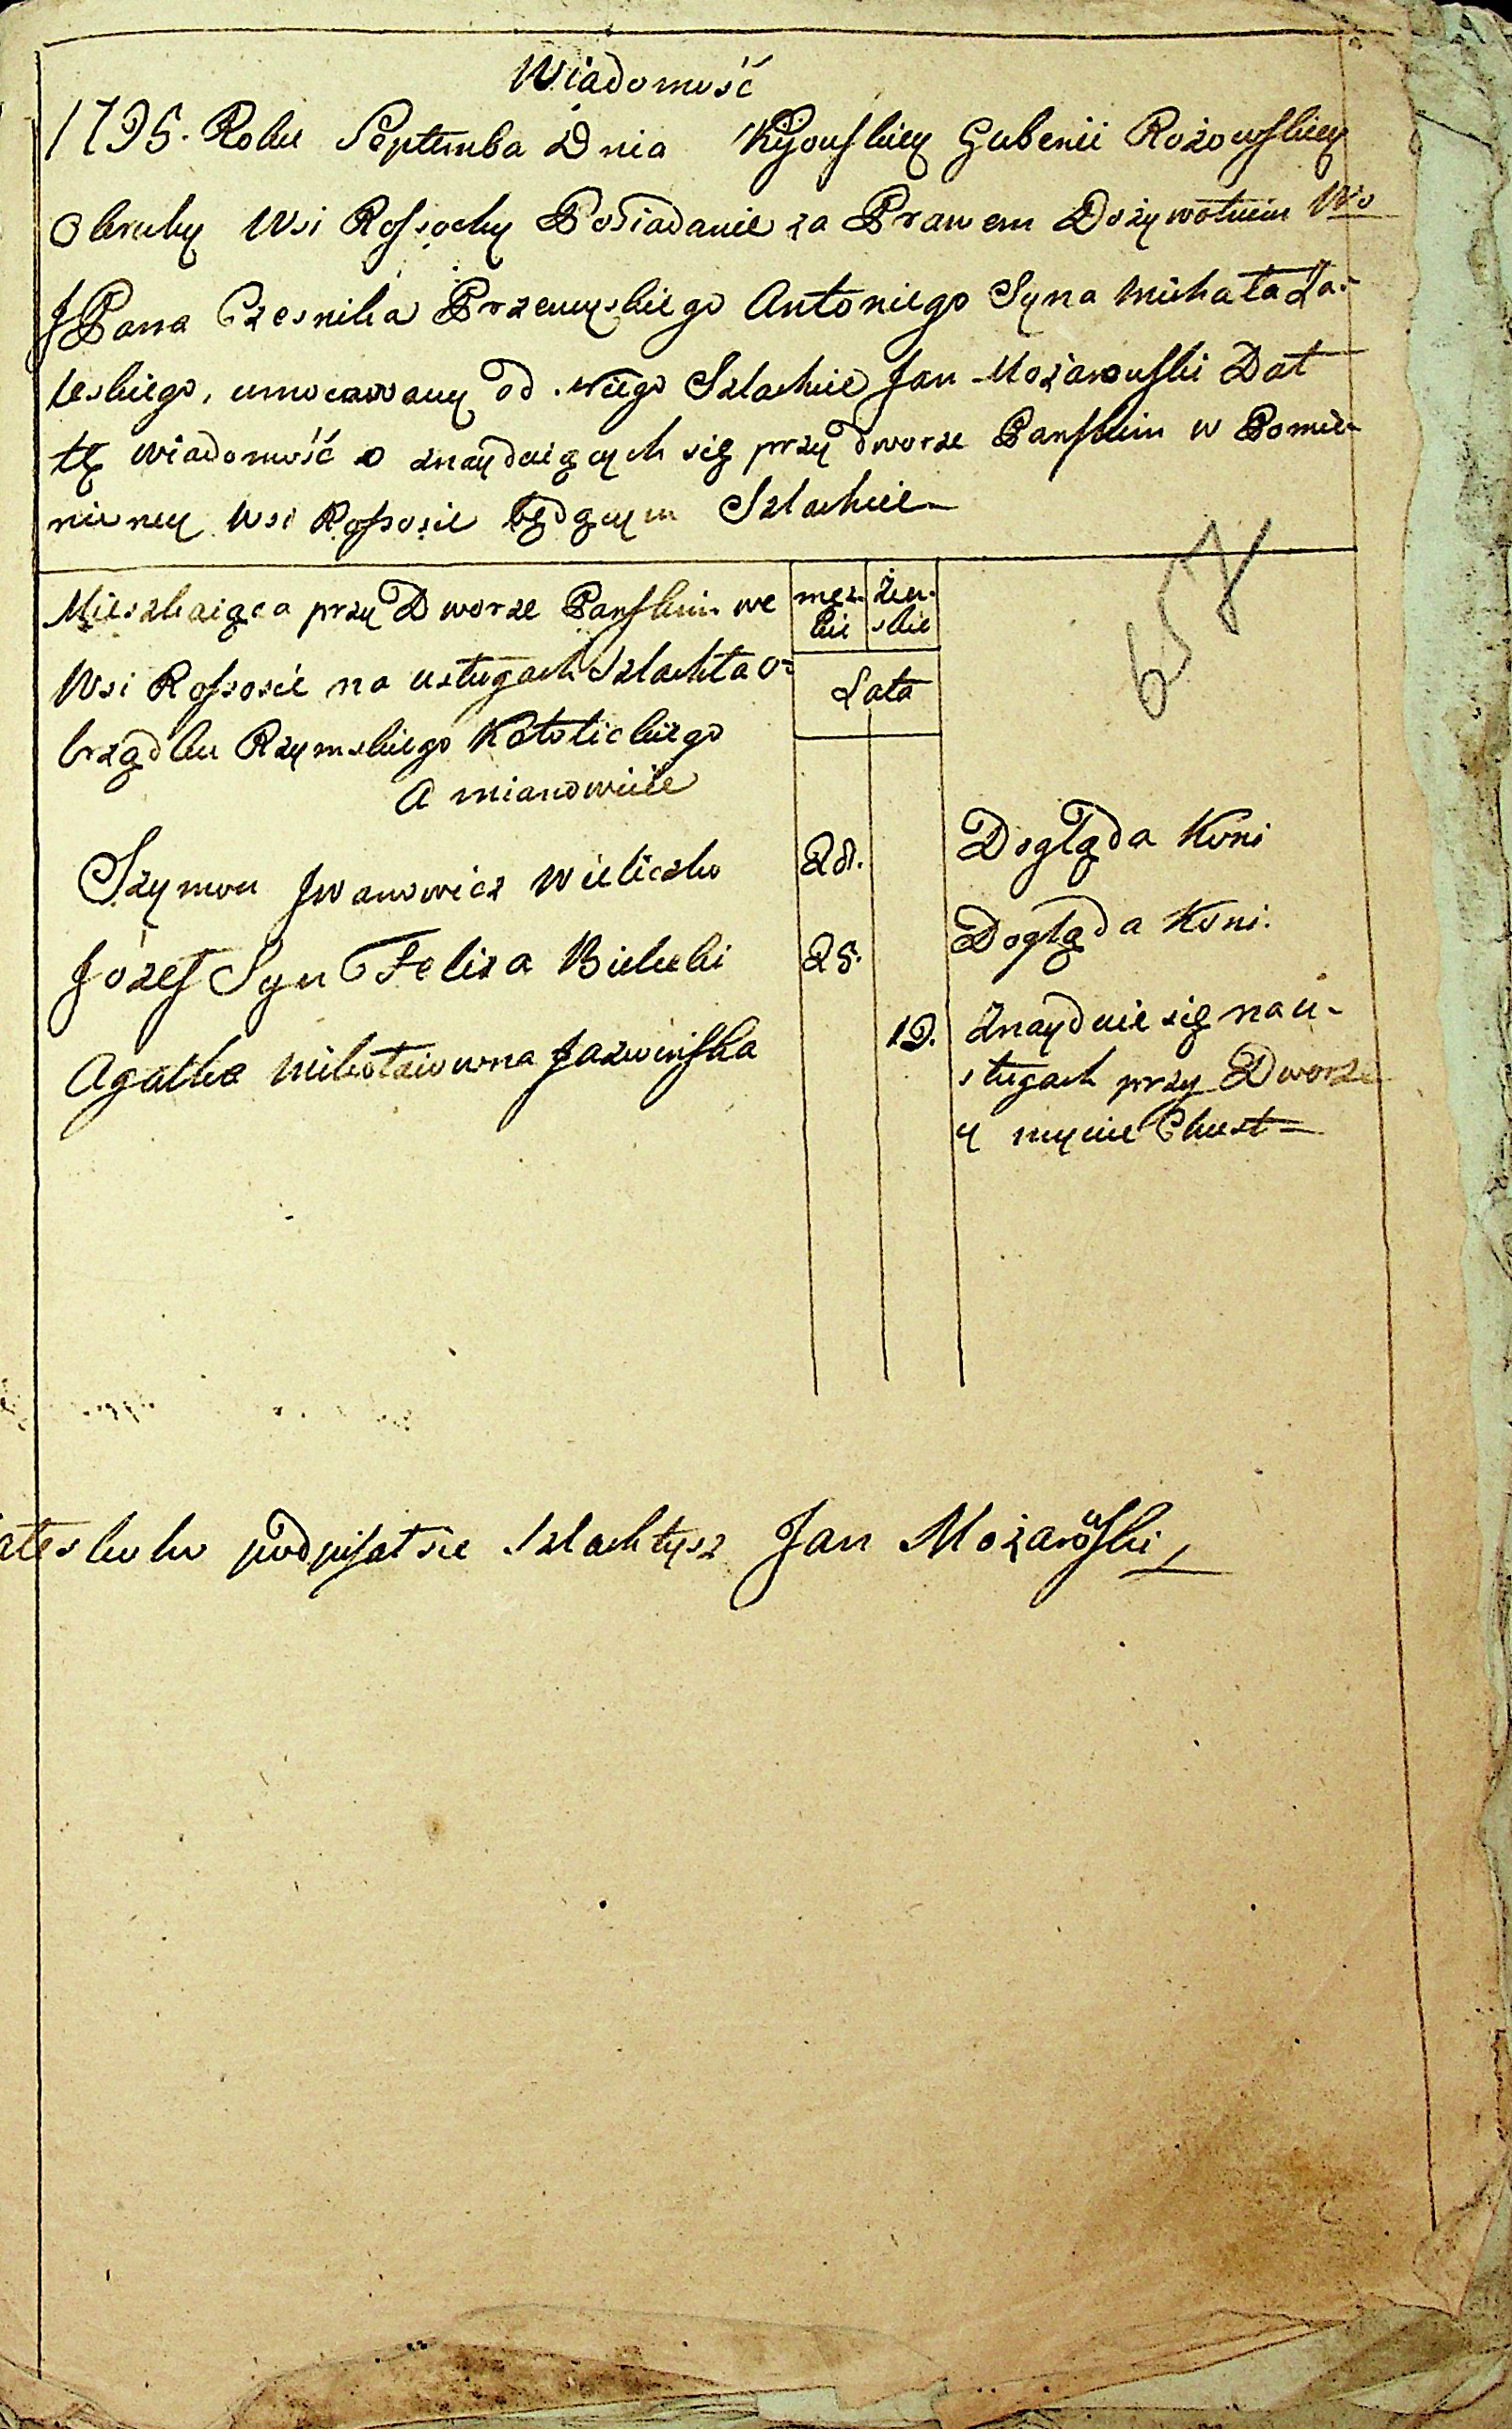 Wiadomość
1795. Roku Septembra Dnia Kijowskiey Gubenii Rożowskiey
Okruhy Wsi Rossochy Posiadanie za Prawem Dożywotnim Wo
JPana Czesnika Przemyskiego Antoniego Syna Michała Za=
leskiego, umocowany od niego Szlachcic Jan Możarowski Dał
tę wiadomość o znayduiących się przy dworze Panskim w Pomie=
nioney Wsi Rossosie będącym Szlachcie
Mieszkaiąca przy Dworze Panskim we
Wsi Rossosie na usługach Szlachta o=
brządku Rzymskiego Katolickiego
A mianowicie
męz=
kie
Żen=
skie
Lata
657
Szymon Jwanowicz Wieliczko 28. Dogląda Koni
Józef Syn Felixa Bielecki 25. Dogląda Koni.
Agatka Mikołaiowna Jazwinska 19. Znayduie się na u=
sługach przy Dworze
y mycie Chust=
podpisał sie szlachtysz Jan Możarowski